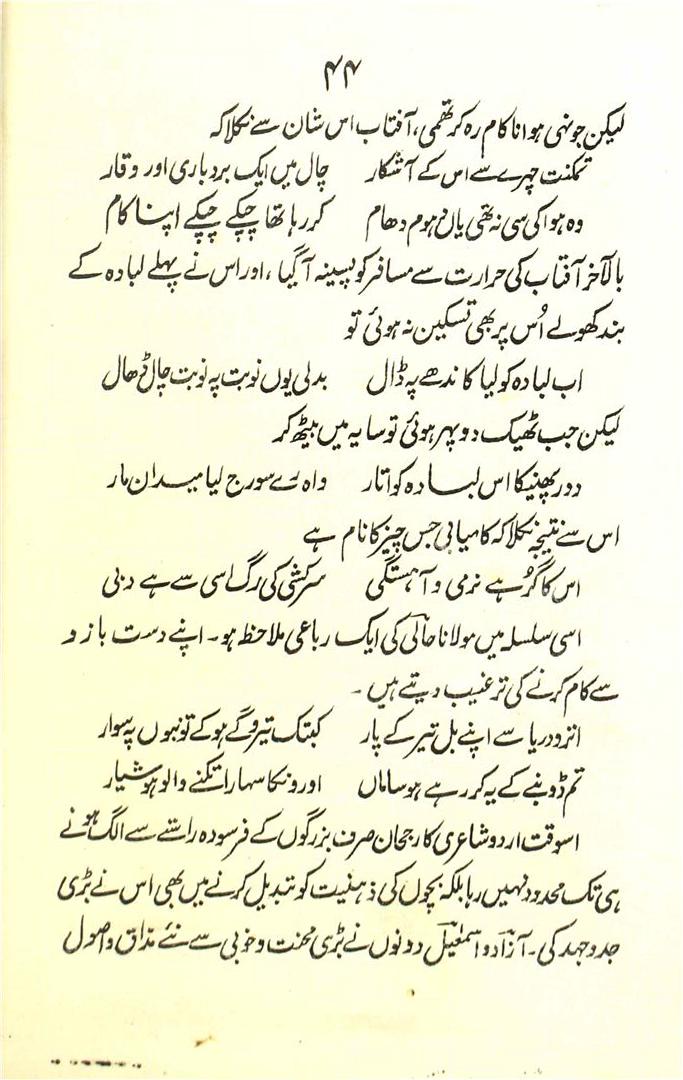 ۴۴
لیکن جونہی ہوا ناکام رہ کر تھمی، آفتاب اس شان سے نکلا کہ
تمکنت چہرے سے اس کے آشکار چال میں ایک بردباری اور وقار
وہ ہوا کی سی نہ تھی یاں دھوم دھام کر رہا تھا چپکے چپکے اپنا کام
بالآخر آفتاب کی حرارت سے مسافر کو پسینہ آگیا، اور اس نے پہلے لبادہ کے
بند کھولے اُس پر بھی تسکین نہ ہوئی تو
اب لبادہ کو لیا کاندھے پہ ڈال بدلی یوں نوبت پہ نوبت چال ڈھال
لیکن جب ٹھیک دوپہر ہوئی تو سایہ میں بیٹھ کر
دور پھینکا اس لبادہ کو اتار واہ رے سورج لیا میدان مار
اس سے نتیجہ نکلا کہ کامیابی جس چیز کا نام ہے
اس کا گُر ہے نرمی و آہستگی سرکشی کی رگ اسی سے ہے دبی
اسی سلسلہ میں مولانا حالیؔ کی ایک رباعی ملاحظہ ہو۔ اپنے دست بازو
سے کام کرنے کی ترغیب دیتے ہیں۔
اترو دریا سے اپنے بل تیر کے پار کبتک تیروگے ہوکے تونبوں پہ سوار
تم ڈوبنے کے یہ کر رہے ہو ساماں اورونکا سہارا تکنے والو ہوشیار
اسوقت اردو شاعری کا رجحان صرف بزرگوں کے فرسودہ راستے سے الگ ہونے
ہی تک محدود نہیں رہا بلکہ بچوں کی ذہنیت کو تبدیل کرنے میں بھی اس نے بڑی
جدوجہد کی۔ آزادؔ و اسمٰعیلؔ دونوں نے بڑی محنت و خوبی سے نئے مذاق و اصول